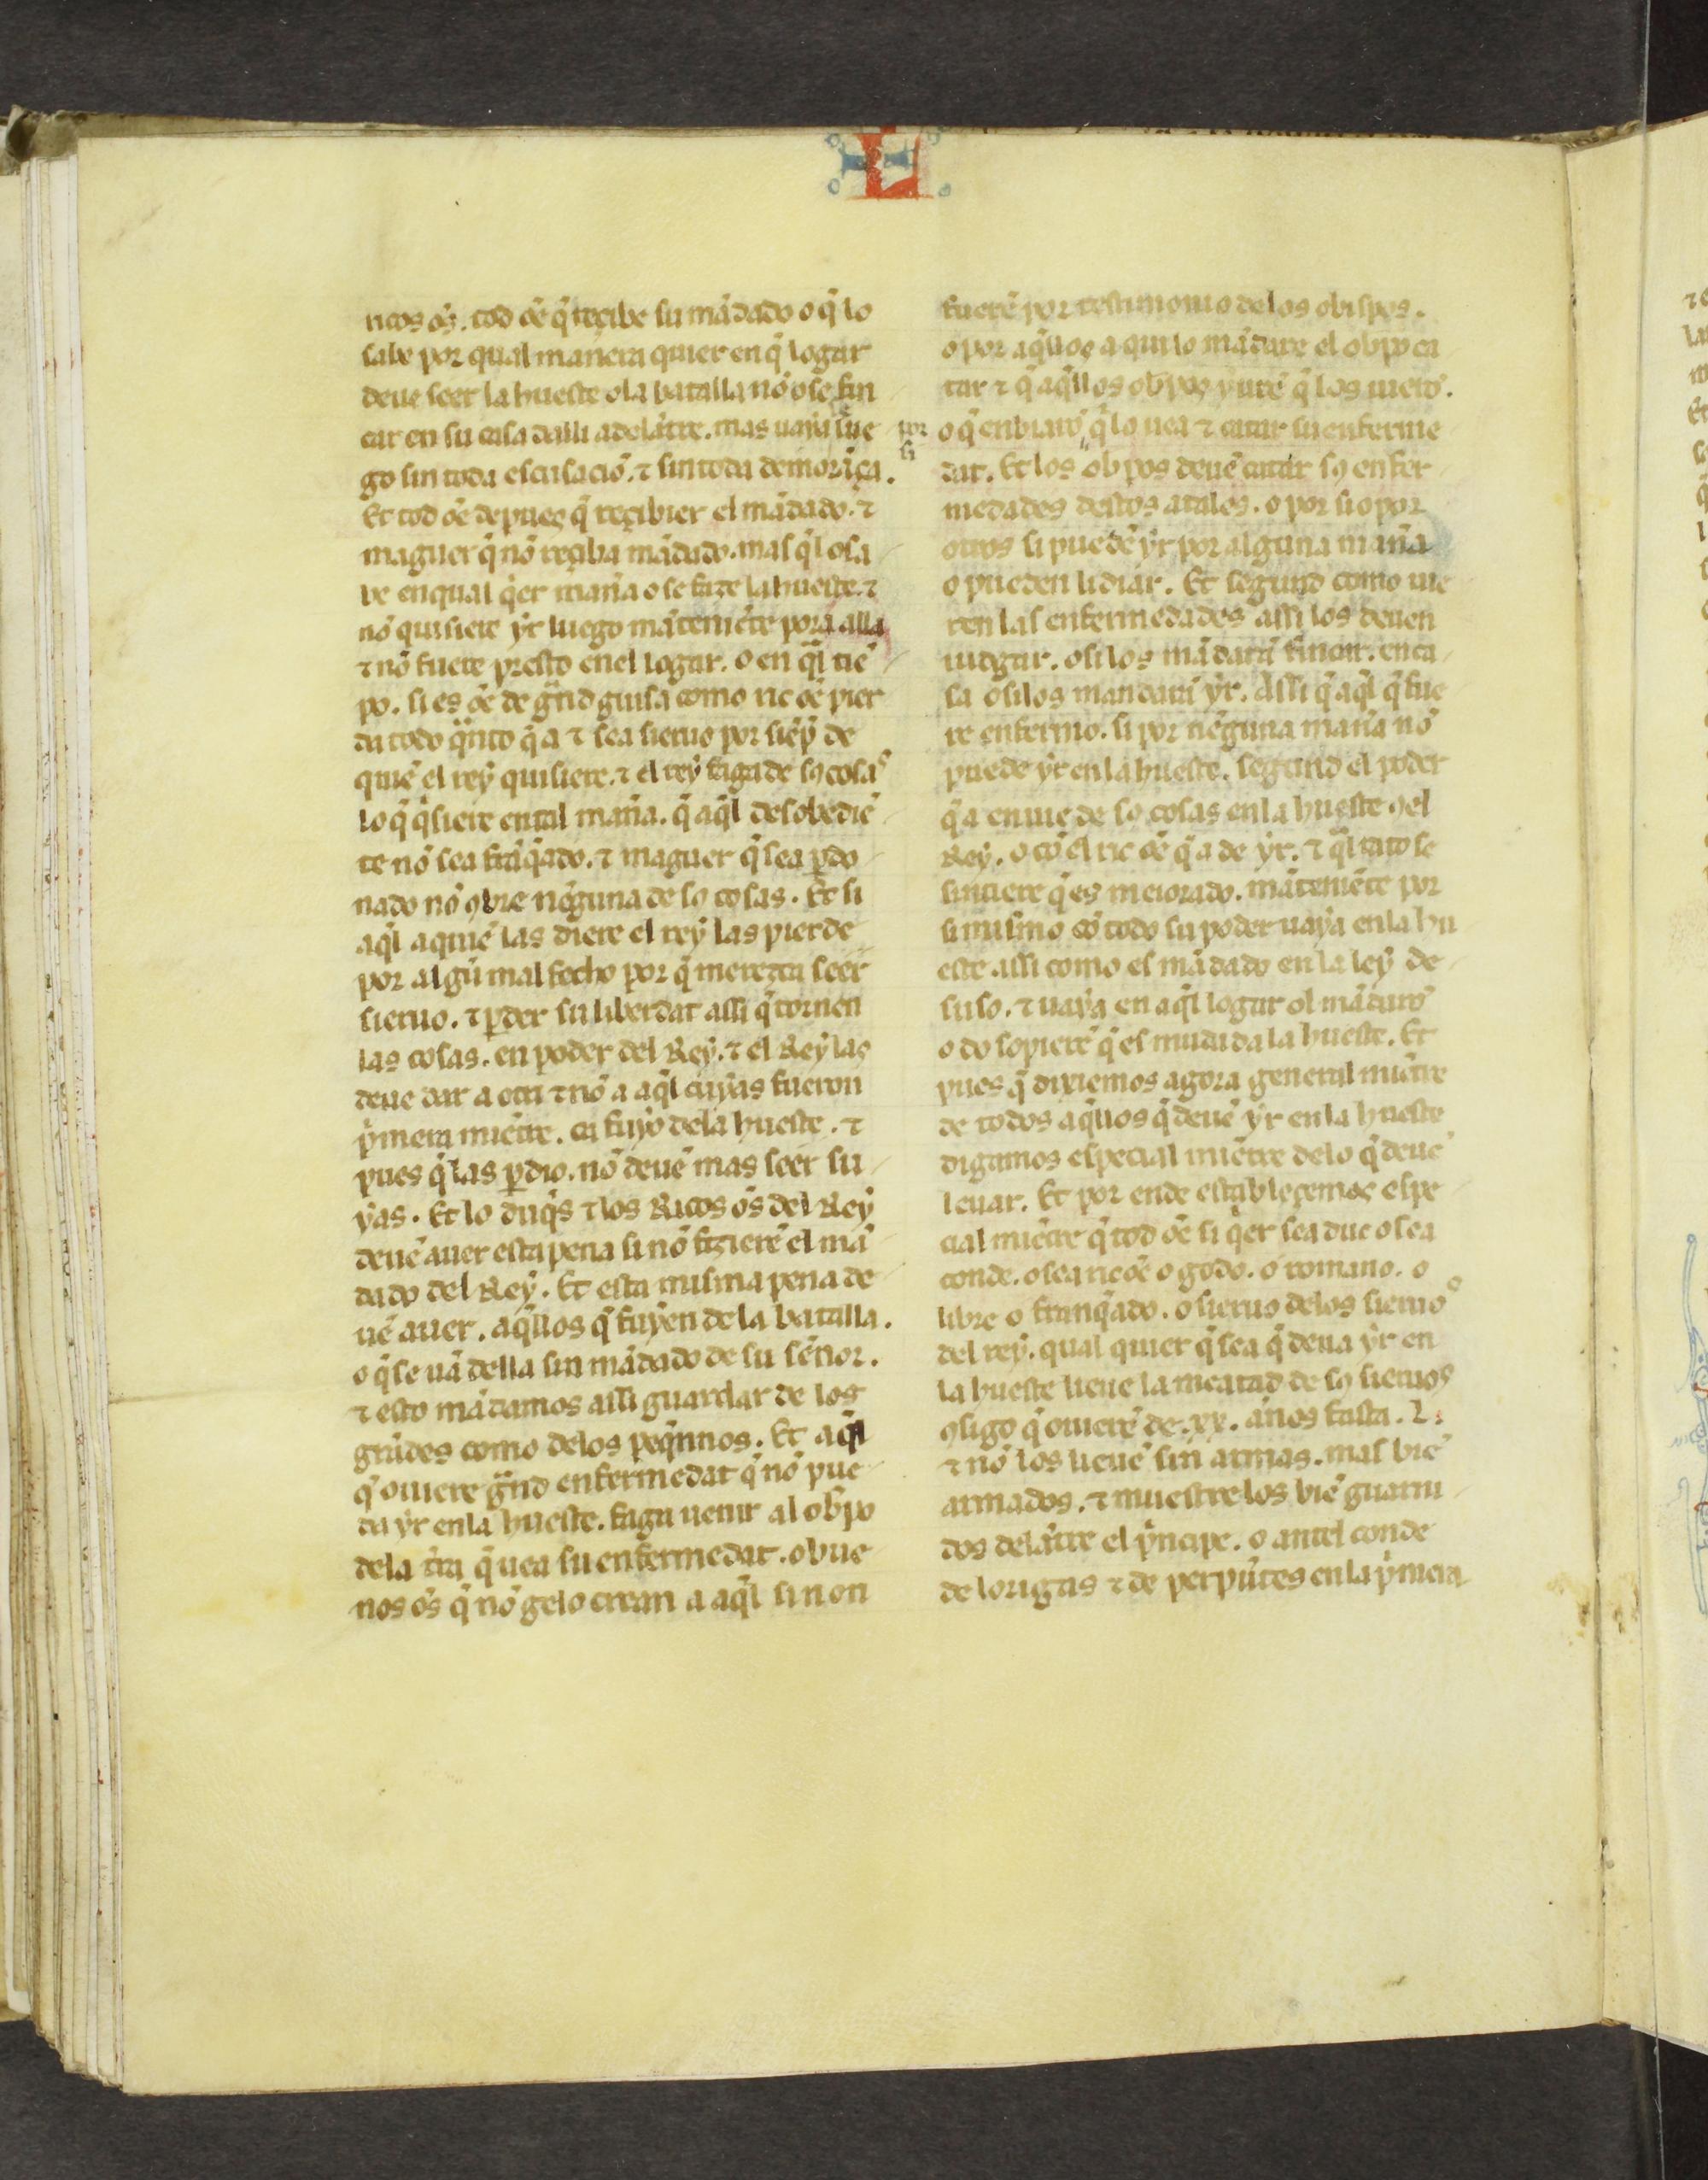 L
ricos os̃. tod õe q̃ reçibe su mãdado o q̃ lo
sabe por qual manera quier en q̃ logar
deue seer la hueste o la batalla nõ ose fin
car en su casa dalli adelãtre. mas uaya lue
go sin toda escusaciõ. ⁊ sin toda demorãça.
Et tod õe depues q̃ reçibier el mãdado. ⁊
maguer q̃ nõ reçiba mãdado. mas q̃lo sa
be en qual q̃er mañа o se faze la hueste. ⁊
nõ quisiere yr luego mãteniẽte pora alla
⁊ nõ fuere presto en el logar. o en q̃l tiẽ
po. si es õe de grãd guisa como ric õe pier
da todo q̃nto q̃ a ⁊ sea sieruo por siẽp̃ de
quiẽ el rey quisiere. ⁊ el rey faga de sꝯ cosas
lo q̃ q̃siere en tal mañа. q̃ aq̃l desobediẽ
te nõ sea frãq̃ado. ⁊ maguer q̃ sea ꝑdo
nado nõ ꝯbre nẽguna de sꝯ cosas. Et si
aq̃l a quiẽ las diere el rey las pierde
por algũ mal fecho por q̃ merezca seer
sieruo. ⁊ ꝑder su libertat assi q̃ tornen
las cosas. en poder del Rey. ⁊ el Rey las
deue dar a otri ⁊ nõ a aq̃l cuyas fueron
p̃mera miẽtre. ca fuyo dela hueste. ⁊
pues q̃ las ꝑdio. nõ deuẽ mas seer su
yas. Et lo duq̃s ⁊ los Ricos os̃ del Rey
deuẽ auer esta pena si nõ fizierẽ el mã
dado del Rey. Et esta misma pena de
uẽ auer. aq̃llos q̃ fuyen de la batalla.
o q̃ se uã della sin mãdado de su sẽnor.
⁊ esto mãdamos assi guardar de los
grãdes como delos peq̃nnos. Et aq̃l
q̃ ouiere grãd enfermedat q̃ nõ pue
da yr en la hueste. faga uenir al obp̃o
dela t̃ra q̃ uea su enfermedat. o bue
nos os̃ q̃ nõ gelo crean a aq̃l si non
fuerẽ por testimonio de los obispos.
o por aq̃llos a qui lo mãdare el obp̃o ca
tar ⁊ q̃ aq̃llos obpos yurẽ q̃ los uierõ.
por si
o q̃ enbiarõ q̃ lo uea ⁊ catar su enferme
dat. Et los obpos deuẽ catar sꝯ enfer
medades destos atales. o por si o por
otros si puedẽ yr por alguna mañа
o pueden lidiar. Et segund como uie
ren las enfermedades assi los deuen
iudgar. o si los mãdarã fincar. en ca
sa o si los mandarã yr. Assi q̃ aq̃l q̃ fue
re enfermo. si por nẽguna mañа nõ
puede yr en la hueste. segund el poder
q̃ a enuie de so cosas en la hueste ꝯ el
Rey. o cõ el ric õe q̃ a de yr. ⁊ q̃l tãto se
sintiere q̃ es meiorado. mãteniẽte por
si mismo cõ todo su poder uaya en la hu
este assi como es mãdado en la ley de
suso. ⁊ uaya en aq̃l logar ol mãdarõ
o do sopierẽ q̃ es mudada la hueste. Et
pues q̃ dixiemos agora general miẽtre
de todos aq̃llos q̃ deuẽ yr en la hueste
digamos especial miẽtre delo q̃ deuẽ
leuar. Et por ende establecemos espe
cial miẽtre q̃ tod õe si q̃er sea duc o sea
conde. o sea ric õe o godo. o romano. o
libre o franq̃ado. o sieruo delos sieruos
del rey. qual quier q̃ sea q̃ deua yr en
la hueste lieue la meatad de sꝯ sieruos
ꝯsigo q̃ ouierẽ de .xx. ãnos fasta .L.
⁊ nõ los lieuẽ sin armas. mas biẽ
armados. ⁊ muestre los biẽ guarni
dos delãtre el p̃ncipe. o antel conde
de lorigas ⁊ de perpũtes en la p̃mera